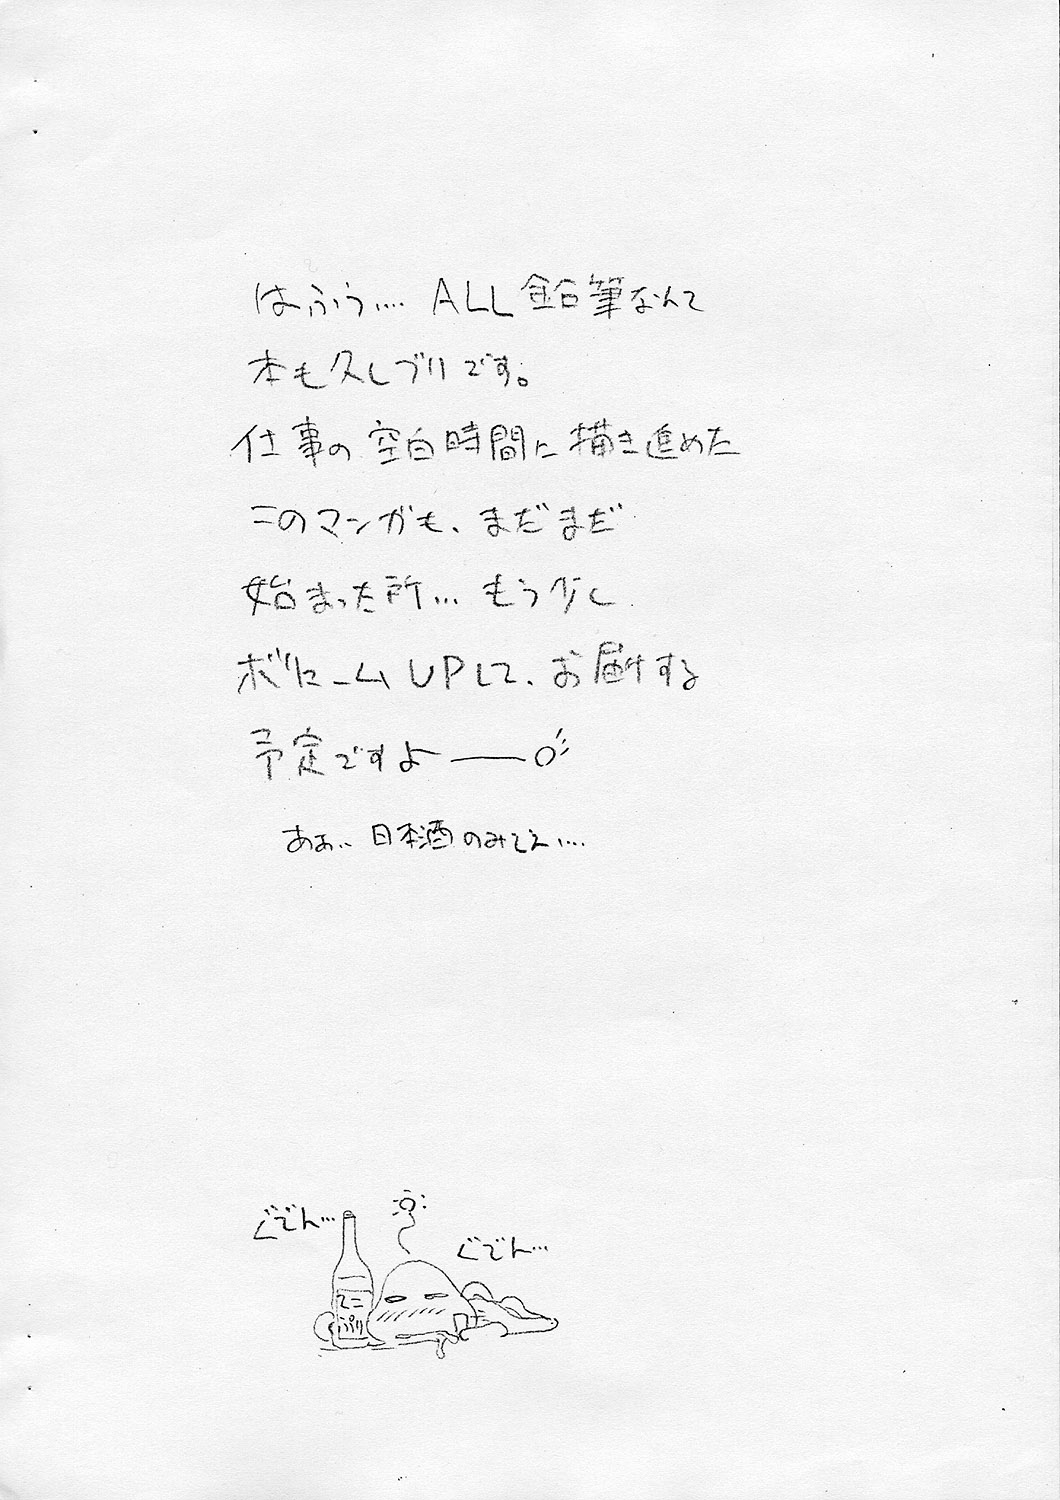 はふう…. ALL鉛筆なんて
本も久しブリです。
仕事の空白時間に描き進めた
このマンガも、まだまだ
始まった所… もう少し
ボリュームUPして、お届する
予定ですよ――o
ああ、日本酒のみてえ….
ぐでん…
ぐでん…
ぷり